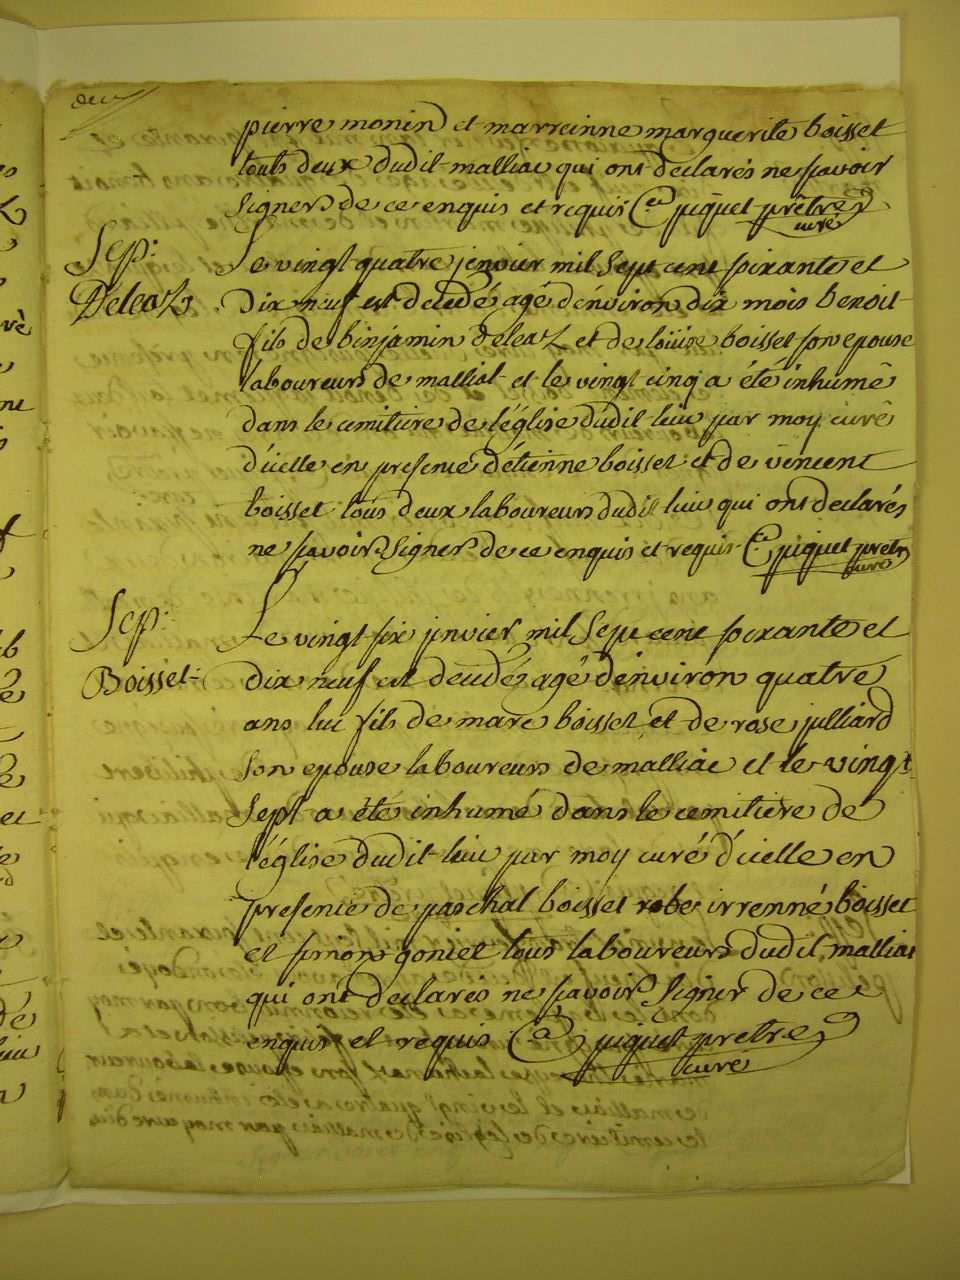 deux
pierre monin et marreinne marguerite boisset
touts deux dudit malliac qui ont declarés ne scavoir
signer de ce enquis et requis piquet prêtre
curé
Sep:
Deleaz
Le vingt quatre jenvier mil sept cent soixante et
dix neuf est decedé agé d'environ dix mois benoit
fils de binjamin deleaz et de loüise boisset son epouse
laboureurs de malliat et le vingt cinq a été inhumé
dans le cemitiere de l'église dudit lieu par moy curé
d'icelle en presence d'étienne boisset et de vincent
boisset tous deux laboureurs dudit lieu qui ont declarés
ne scavoir signer de ce enquis et requis piquet pretre
curé
Sep:
Boisset
Le vingt six jenvier mil sept cent soixante et
dix neuf est decedé agé d'environ quatre
ans fils de marc boisset et de rose julliard
son epouse laboureurs de malliac et le vingt
sept a été inhumé dans le cemitiere de
l'église dudit lieu par moy curé d'icelle en
presence de paschal boisset irrenné boisset
et simon goniet tous laboureurs dudit malliat
qui ont declarés ne scavoir signer de ce
enquis et requis piquet pretre
curé